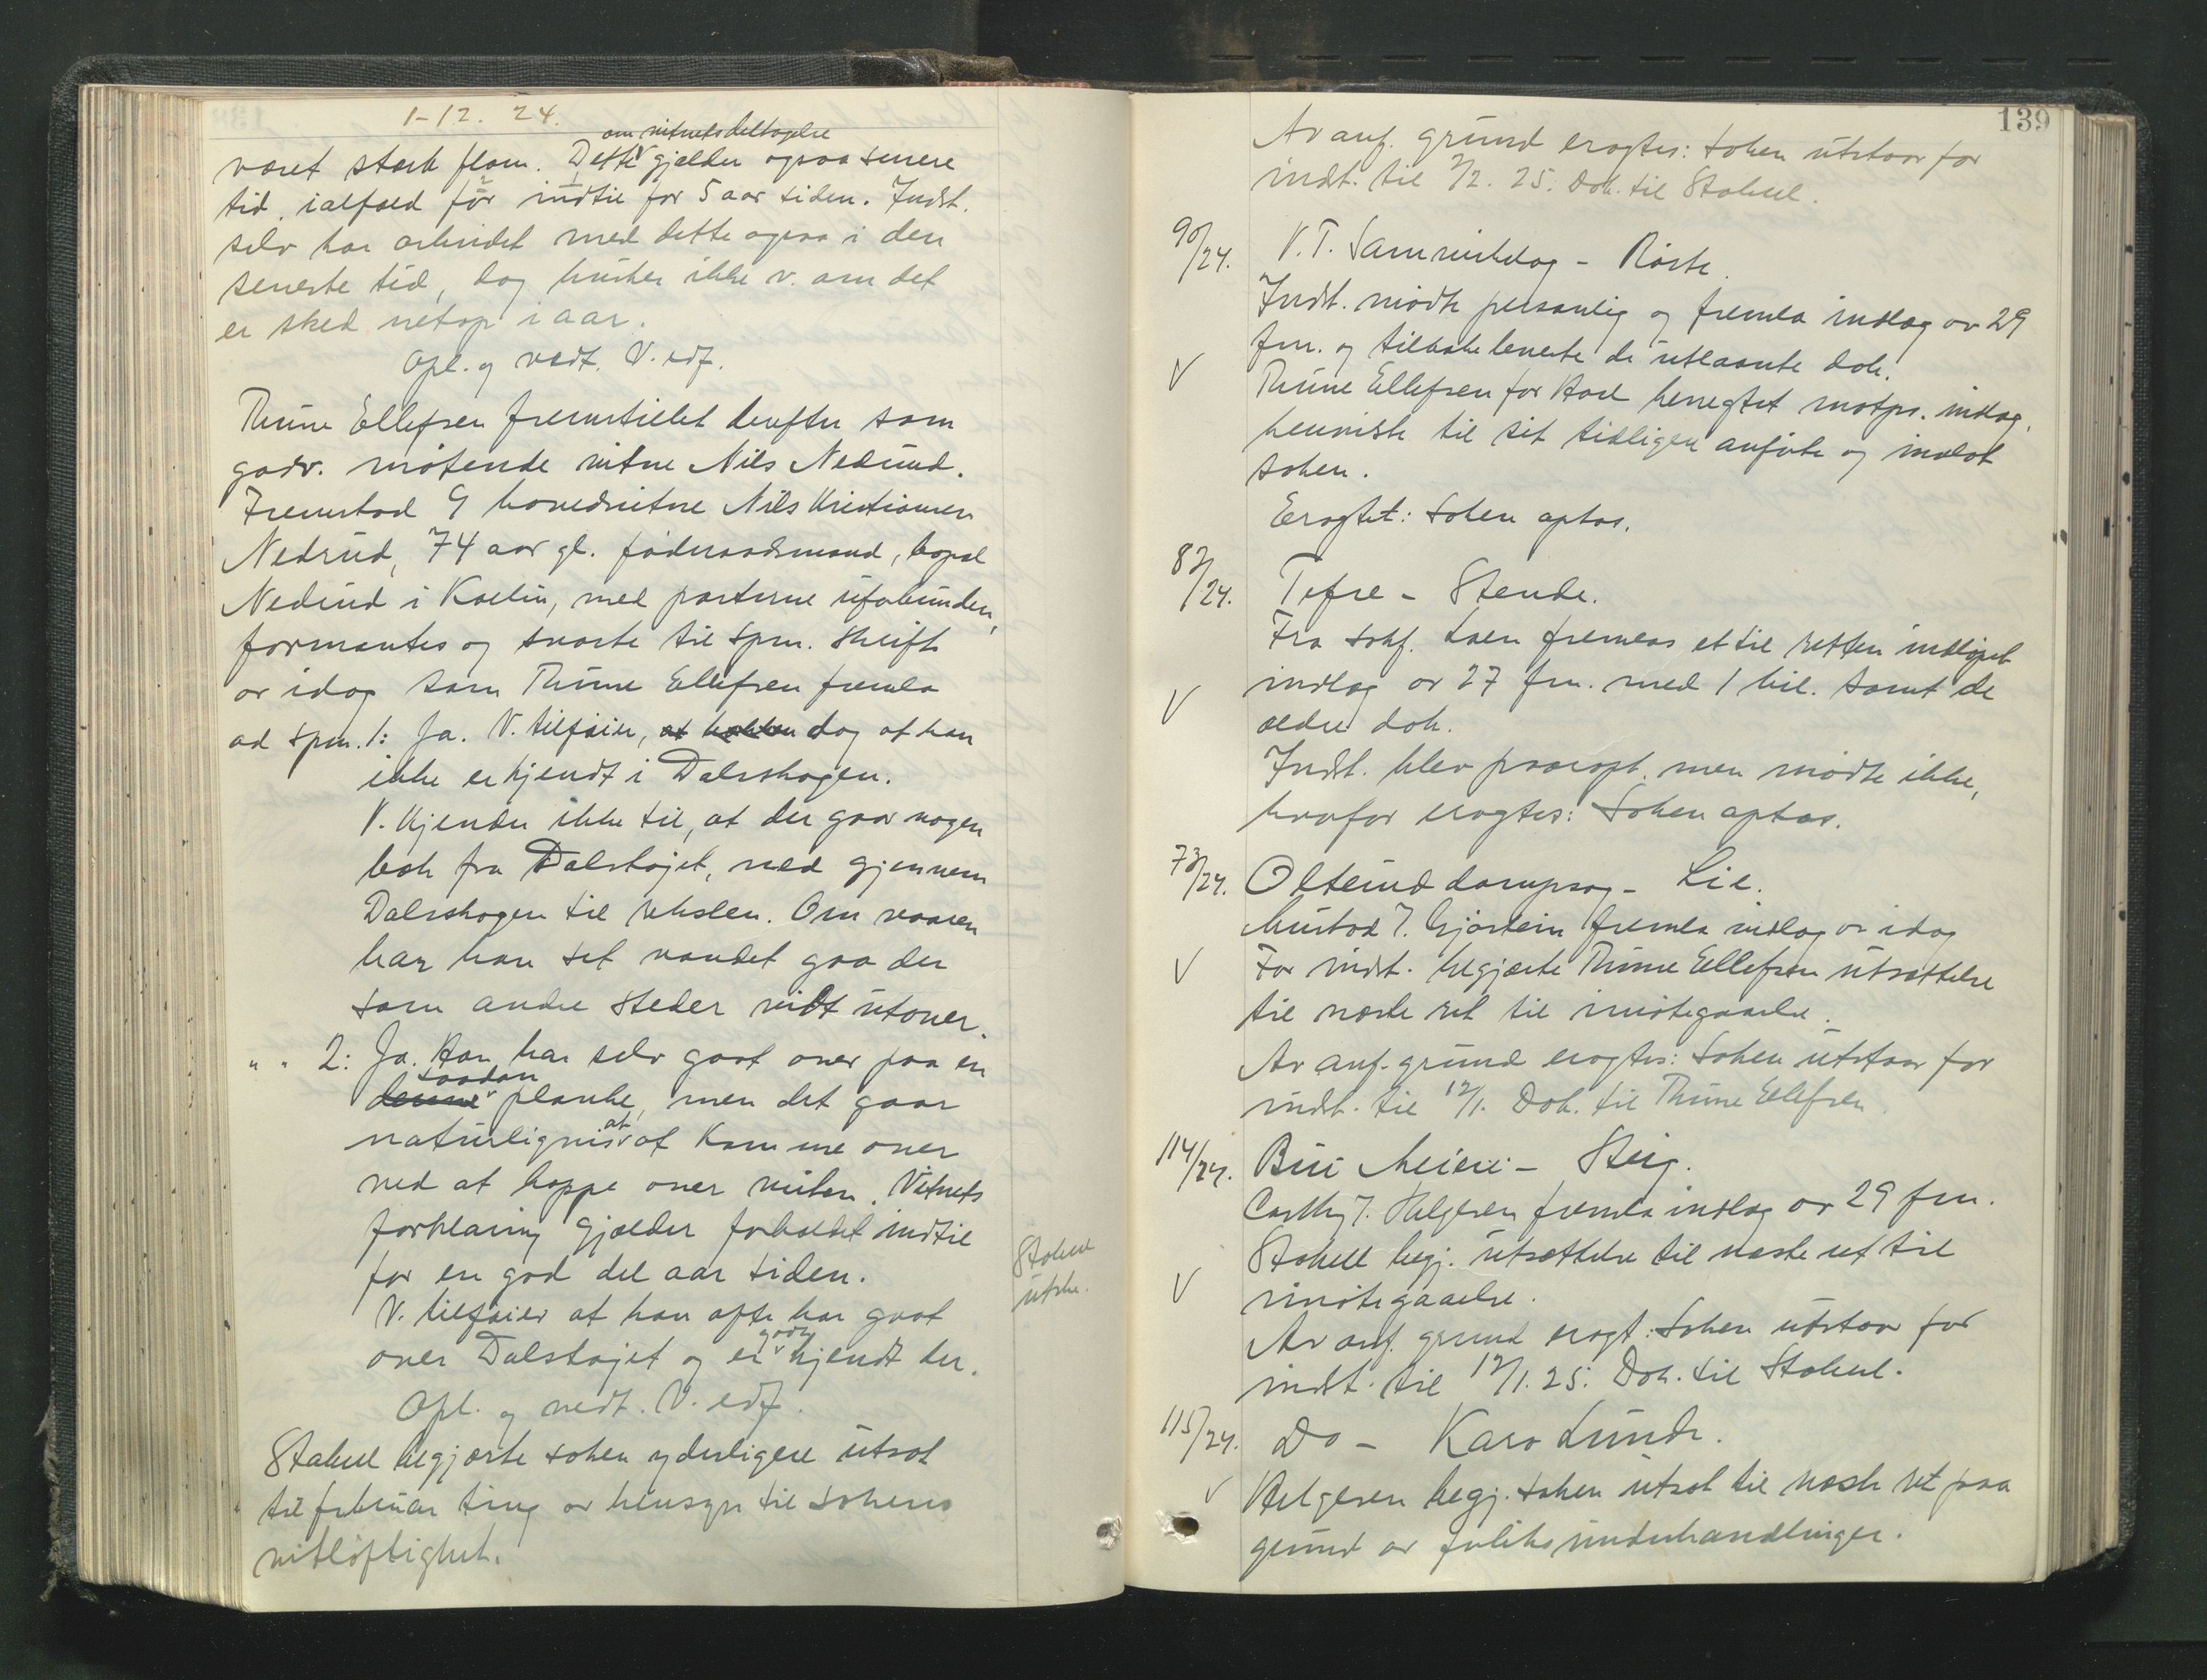 1-12. 24.
om vitnets deltagelse
været sterk flom. Dette gjælder ogsaa senere
tid, ialfald før indtil for 5 aar siden. Indst.
selv har arbeidet med dette ogsaa i den
seneste tid, dog husker ikke v. om det
er sked netop i aar.
Opl. og vedt. V. edf.
Thune Ellefsen fremstillet derefter som
godv. møtende vitne Nils Nedrud.
Fremstod 9 hovedvitne Nils Kristiansen
Nedrud, 74 aar gl. føderaadsmand, bopæl
Nedrud i Kolbu, med parterne uforbunden,
formantes og svarte til spm. skrift
av idag som Thune Ellefsen fremla
ad spm. 1: Ja. V. tilføier, dog at han
ikke er kjendt i Dalsskogen.
V. kjender ikke til, at der gaar nogen
bæk fra Dalstøjet, ned gjennem
Dalsskogen til . Om vaaren
har han set vandet gaa der
som andre steder vidt utover.
" " 2: Ja. Han har selv gaat over paa en
saadan
denne planke, men det gaar
at
naturligvis at komme over
ved at hoppe over . Vitnets
forklaring gjælder forholdet indtil
for en god del aar siden.
V. tilføier at han ofte har gaat
godt
over Dalstøjet og er kjendt der.
Opl. og vedt. V. edf.
Stabell begjærte saken yderligere utsat
til februar ting av hensyn til sakens
vitløftighet.
Stabell
utskr.
139
Av anf. grund eragtes: Saken utstaar for
indst. til 2/2. 25. Dok. til Stabell.
90/24. V. T. Samvirkelag - Røste.
Indst. møtte personlig og fremla indlæg av 29
fm. og tilbakeleverte de utlaante dok.
Thune Ellefsen for Kad benegtet motps. indlæg,
henviste til sit tidligere anførte og indlot
saken.
Eragtet: Saken optas.
82/24. Tofte - Stende.
Fra sakf. Lien fremlaas et til retten indløpet
indlæg av 27 fm. med 1 bil. samt de
ældre dok.
Indst. blev paaropt, men møtte ikke,
hvorfor eragtes: Saken optas.
73/24. Olterud dampsag - Lie.
Mustad f. Gjørstein fremla indlæg av idag
For indst. begjærte Thune Ellefsen utsættelse
til næste ret til imøtegaaelse.
Av anf. grund eragtes: Saken utstaar for
indst. til 12/1. Dok. til Thune Ellefsen
114/24. Biri Meieri - Steig.
Casthy f. Helgesen fremla indlæg av 29 fm.
Stabell begj. utsættelse til næste ret til
imøtegaaelse.
Av anf. grund eragt: Saken utstaar for
indst. til 12/1. 25. Dok. til Stabell.
115/24. Do - Karo Lunde.
Helgesen begj. saken utsat til næste ret paa
grund av forliksunderhandlinger.